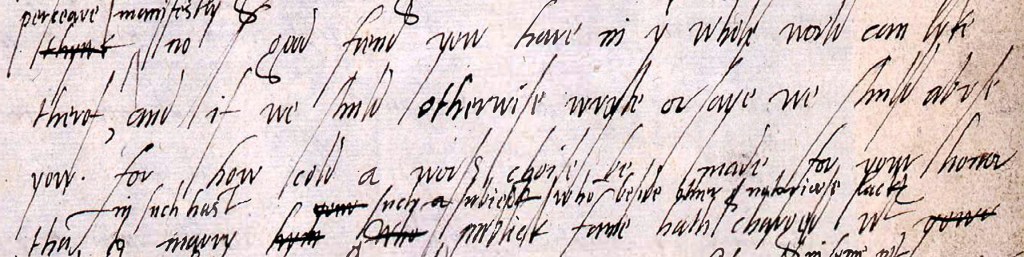 perceave manifestly
thynk no good frend yow have in yͤ whole world can lyke
therof, and if we shuld otherwise wryte or saye we shuld abuse
yow. for how cold a worss choise be made for your honor
in such hast such a subiect who beside other & notoriouse lackͭ
than to marry hym who publick fame hath charged wͭ